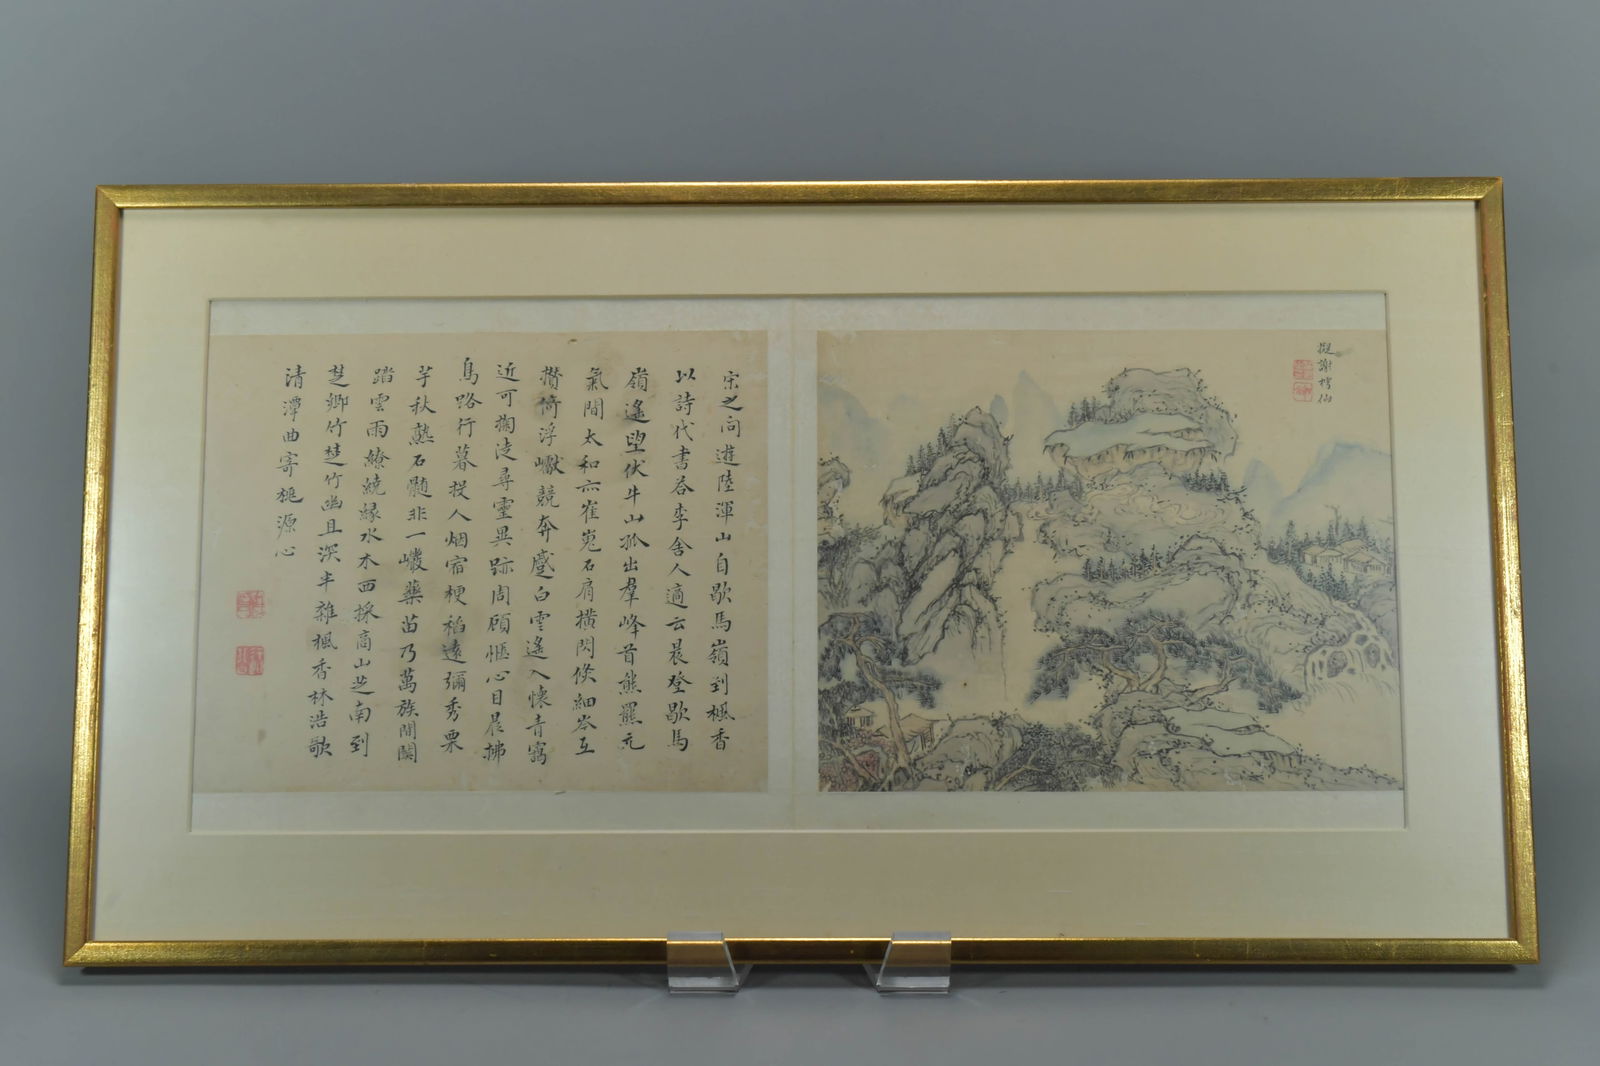 擬謝樗仙
宋之问遊陸渾山自歇馬嶺到楓香
以詩代書答李舍人適云晨登歇馬
嶺遙望伏牛山孤出羣峰首熊羆元
氣間太和亦崔嵬石扇橫閃倏細岑互
攢倚浮巘競奔蹙白雲遙入懷青靄
近可掬淩尋靈異跡周顧愜心目晨拂
鳥路行暮投人烟宿粳稻遠彌秀栗
芋秋熟石髓非一巖藥苗乃萬族間關
踏雲雨繚繞緣水木西採商山芝南到
楚鄉竹楚竹幽且深半雜楓香林浩歌
清潭曲寄桃源心